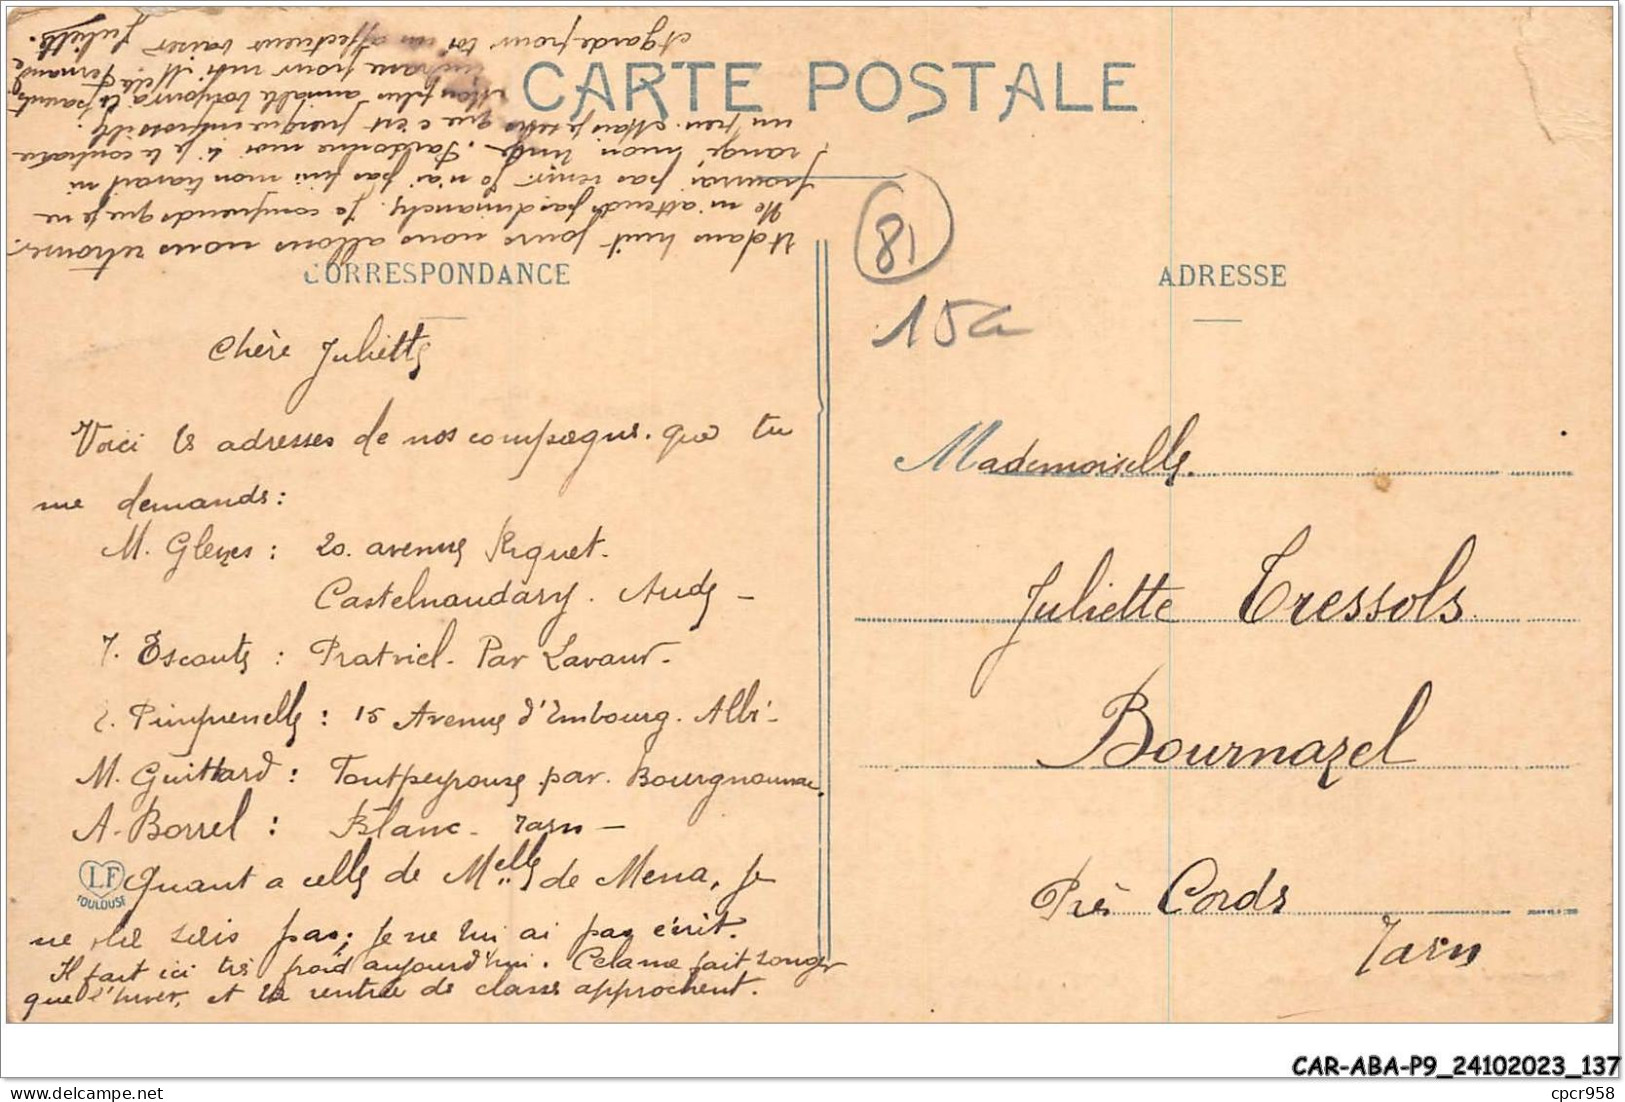 CARTE POSTALE
CORRESPONDANCE
ADRESSE
81
15a
Chère Juliette
Voici les adresses de nos compagnes que tu
me demandes:
M. Glezes: 20. avenue Riquet.
Castelnaudary. Aude -
J. Escoute: Pratviel. Par Lavaur.
Pimprenelle: 15 Avenue d'Embourg. Albi-
M. Guittard: Toutpeyrouse par. Bourgnounac.
A. Borrel: Blanc - Tarn -
Quant a celle de Melle de Mena, je
ne la sais pas; je ne lui ai pas écrit.
Il fait ici très froid aujourd'hui. Cela me fait songer
que l'hiver, et la rentrée de classe approchent.
Et dans huit jours nous allons nous retrouver.
Ne m'attends pas dimanche. Je comprends que je ne
pourrai pas venir. Je n'ai pas fini mon travail ni
rangé mon linge. Pardonne moi si je te contrarie
un peu. Mais je que c'est presque impossible.
Mon plus aimable bonjour à tes parents
pour moi Melle Fernande
et garde pour toi un affectueux baiser Juliette.
Mademoiselle.
Juliette Tressols
Bournazel
Près Cords
Tarn
LF
TOULOUSE
CAR-ABA-P9_24102023_137
cpcr958